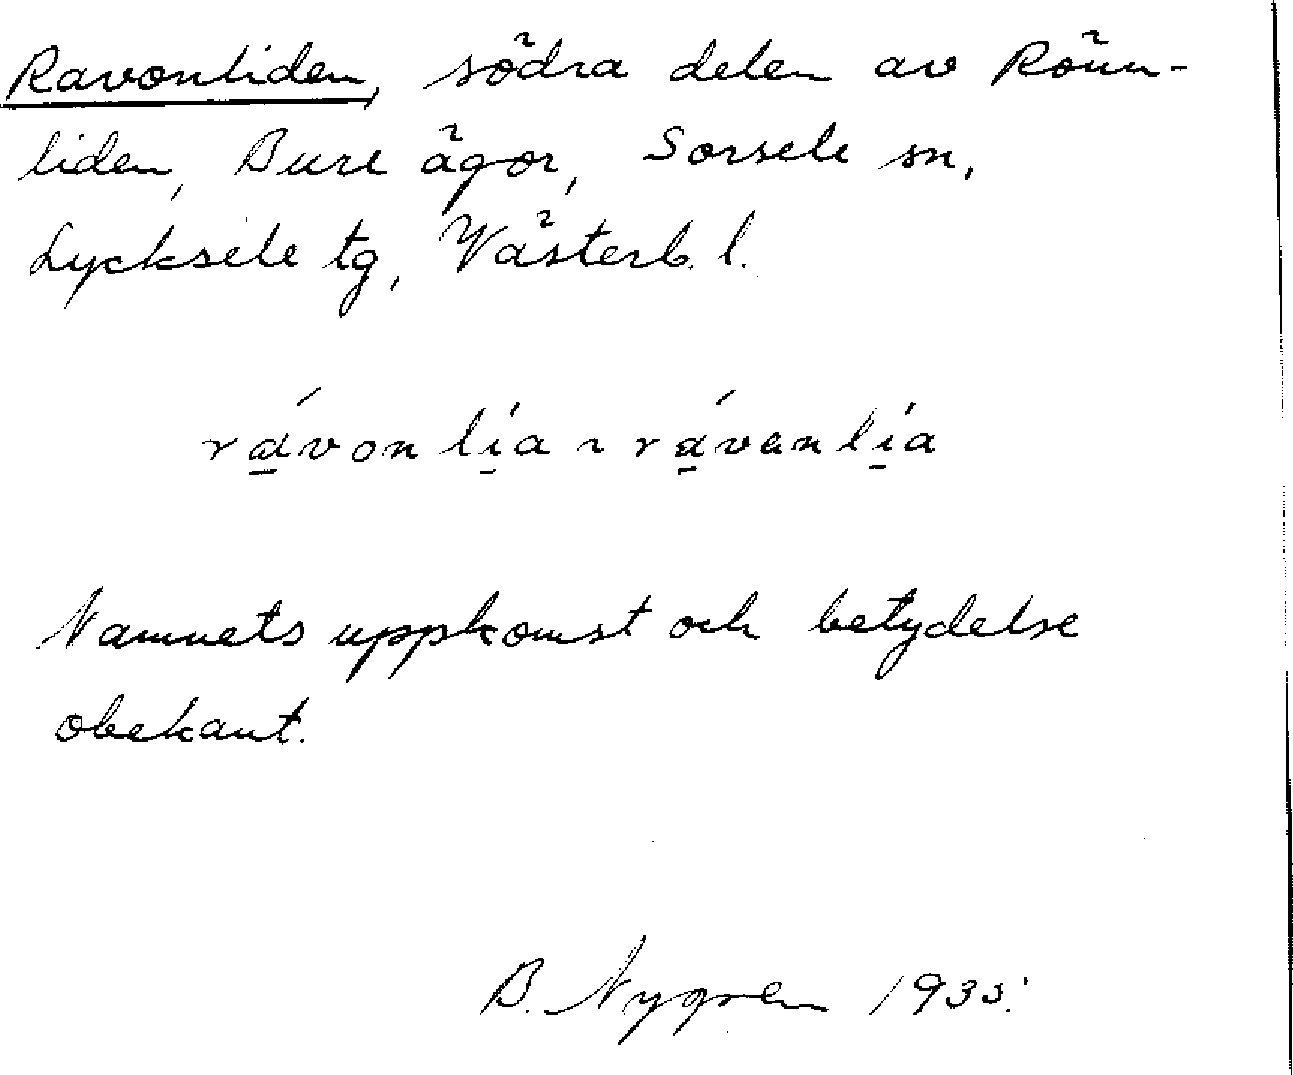 Ravonliden, södra delen av Rönn-
liden, Bure ägor, Sorsele sn,
Lycksele tg, Västerb. l.
rávon lía ~ rávanlía
Namnets uppkomst och betydelse
obekant.
B. Nygren 1933.